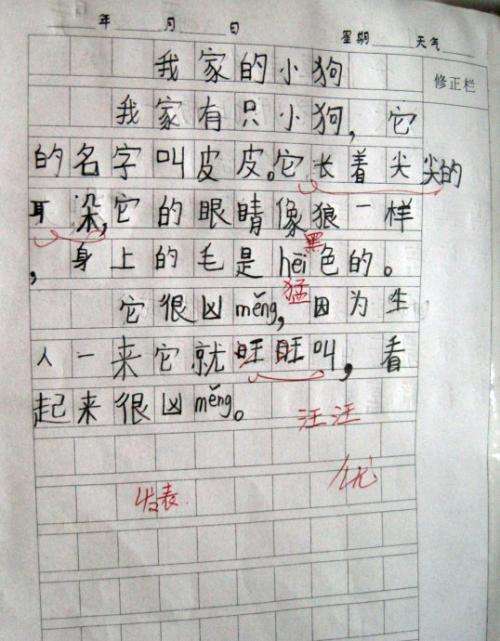 年 月 日 星期 天气
修正栏
我家的小狗
我家有只小狗，它
的名字叫皮皮。它长着尖尖的
耳朵，它的眼睛像狼一样
，身上的毛是hēi色的。
黑
它很凶měng，因为生
猛
人一来它就旺旺叫，看
起来很凶měng。
汪汪
优
发表